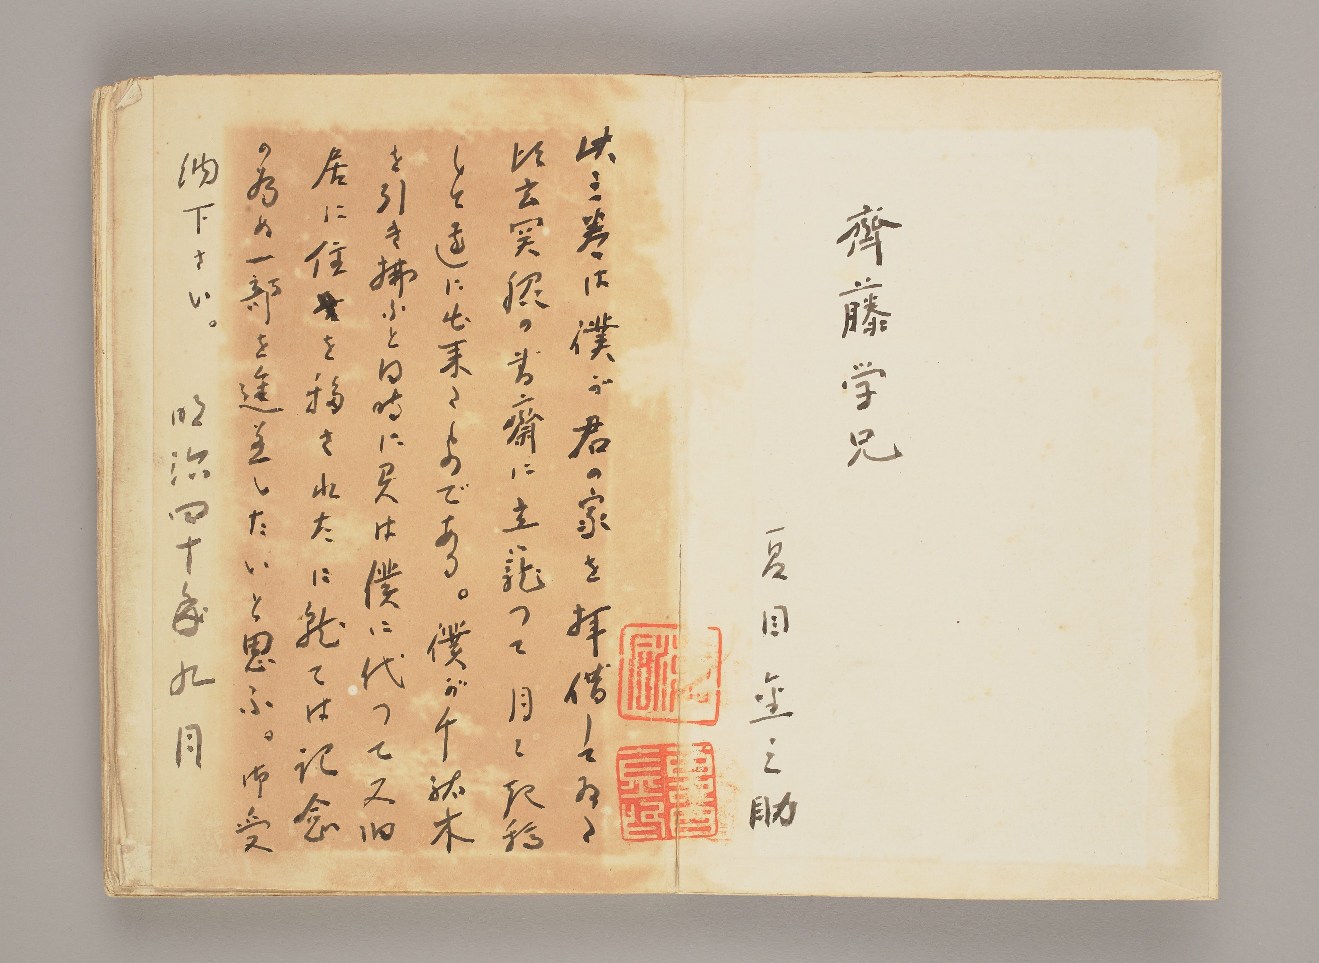 齊藤学兄
夏目金之助
此三巻は僕が君の家を拝借してゐた
時去突然の書斎に立籠つて月々起稿
して遂に出来たものである。僕が千駄木
を引き拂ふと同時に君は僕に代つて又旧
居に住居を移されたに就ては記念
の為め一部を進呈したいと思ふ。御受
納下さい。 明治四十年九月